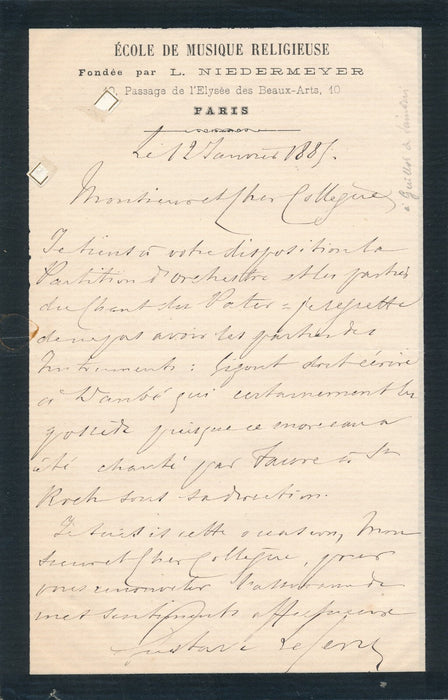 ÉCOLE DE MUSIQUE RELIGIEUSE
Fondée par L. NIEDERMEYER
10, Passage de l'Elysée des Beaux-Arts, 10
PARIS
Le 12 Janvier 1885.
Monsieur et Cher Collègue,
Je tiens à votre disposition la
Partition d'orchestre et les parties
du Chant du Pater = je regrette
de ne pas avoir les parties des
Instruments : Gigout doit écrire
à Danbé qui certainement les
possède puisque ce morceau a
été chanté par Faure à St
Roch sous sa direction.
Je saisis cette occasion, Mon
sieur et Cher Collègue, pour
vous renouveler l'assurance de
mes sentiments affectueux
Gustave Lefèvre
à Guillot de Sainbris